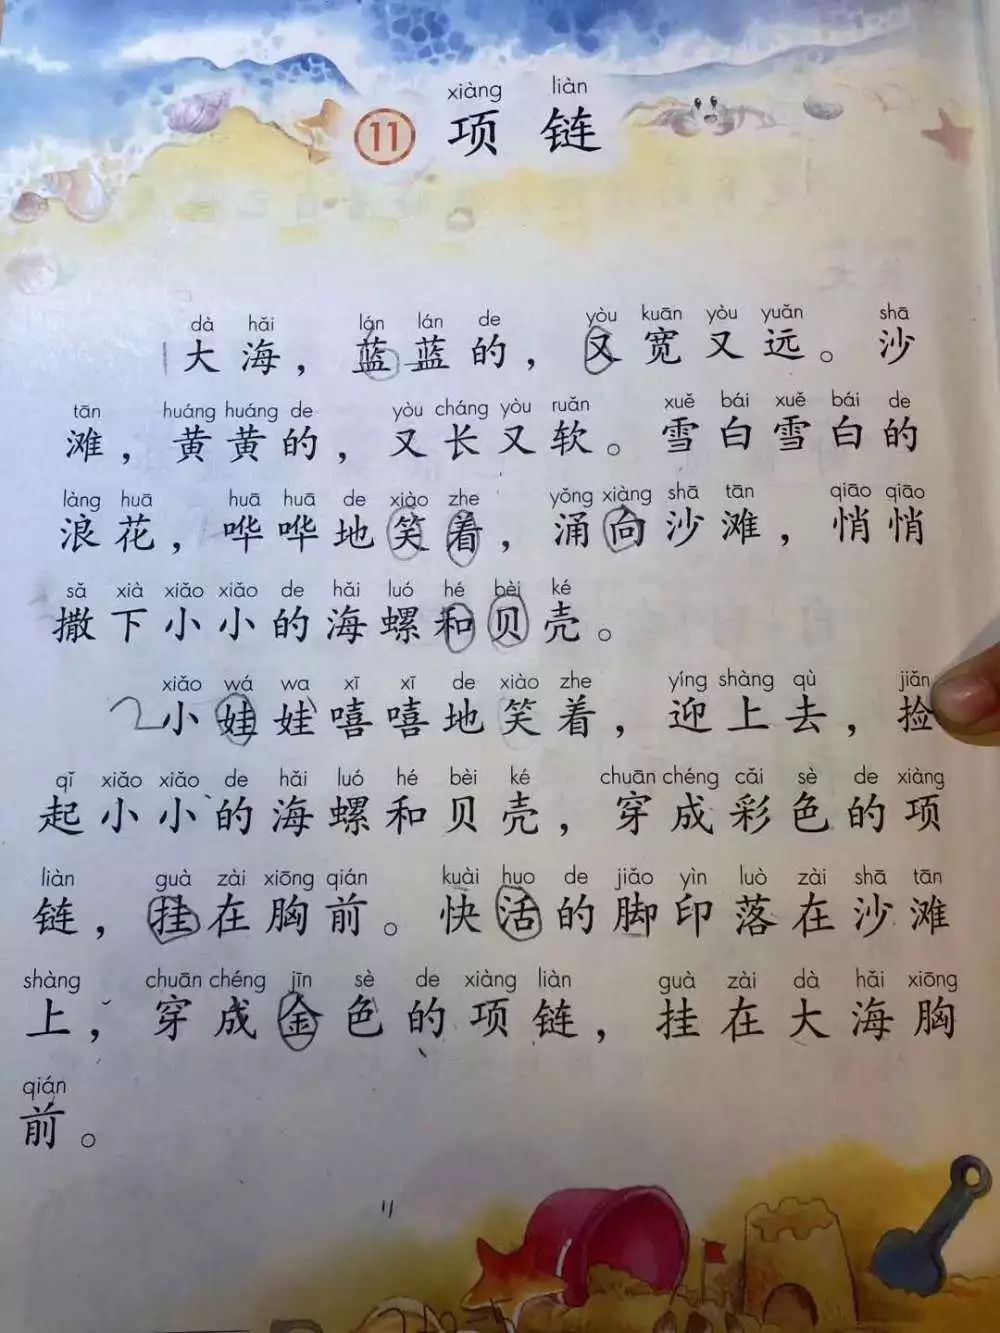 xiàng liàn
11 项链
dà hǎi lán lán de yòu kuān yòu yuǎn shā
1 大海，蓝蓝的，又宽又远。沙
tān huáng huáng de yòu cháng yòu ruǎn xuě bái xuě bái de
滩，黄黄的，又长又软。雪白雪白的
làng huā huā huā de xiào zhe yǒng xiàng shā tān qiāo qiāo
浪花，哗哗地笑着，涌向沙滩，悄悄
sǎ xià xiǎo xiǎo de hǎi luó hé bèi ké
撒下小小的海螺和贝壳。
xiǎo wá wa xī xī de xiào zhe yíng shàng qù jiǎn
2 小娃娃嘻嘻地笑着，迎上去，捡
qǐ xiǎo xiǎo de hǎi luó hé bèi ké chuān chéng cǎi sè de xiàng
起小小的海螺和贝壳，穿成彩色的项
liàn guà zài xiōng qián kuài huo de jiǎo yìn luò zài shā tān
链，挂在胸前。快活的脚印落在沙滩
shàng chuān chéng jīn sè de xiàng liàn guà zài dà hǎi xiōng
上，穿成金色的项链，挂在大海胸
qián
前。
11